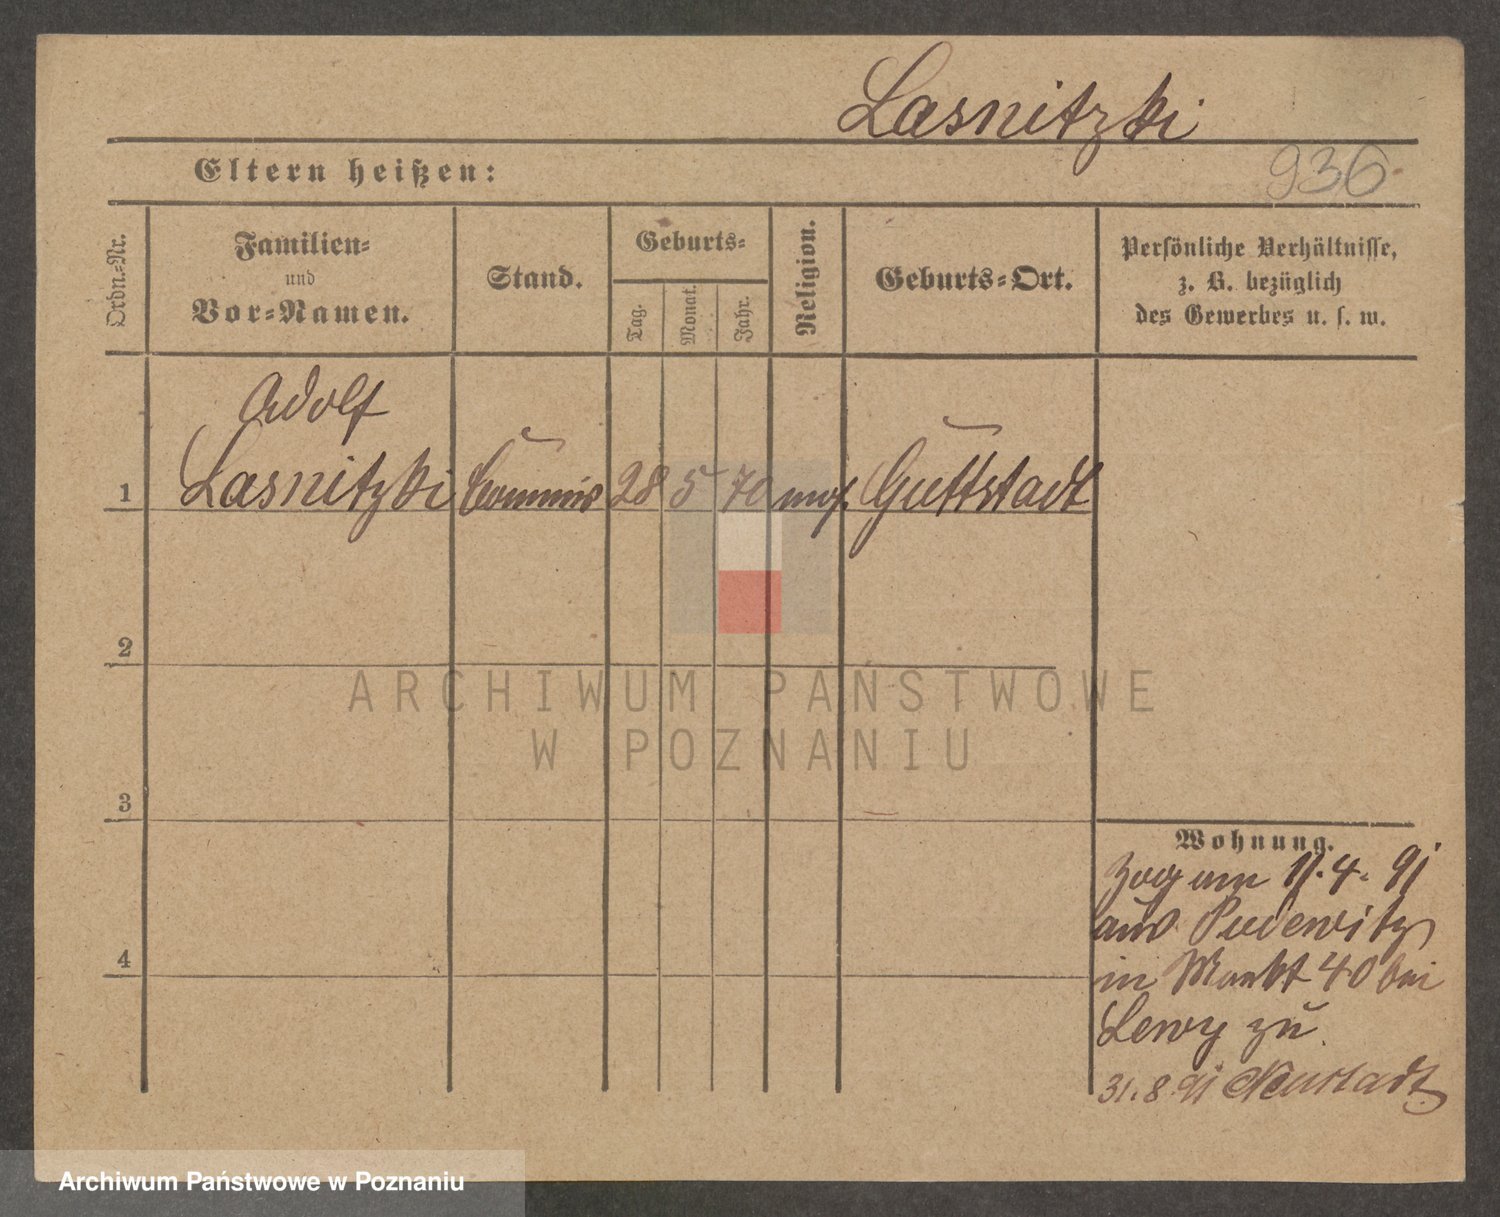 Lasnitzki
Eltern heißen:
936
Ordn.-Nr.
Familien-
und
Vor-Namen.
Stand.
Geburts-
Tag.
Monat.
Jahr.
Religion.
Geburts-Ort.
Persönliche Verhältnisse,
z. B. bezüglich
des Gewerbes u. s. w.
Adolf
1 Lasnitzki Commis 28 5 70 mos. Guttstadt
2
ARCHIWUM PAŃSTWOWE
W POZNANIU
3
Wohnung.
Zog am 11.4.91
aus Pudewitz
4
in Markt 40 bei
Lewy zu
31.8.91 Neustadt
Archiwum Państwowe w Poznaniu